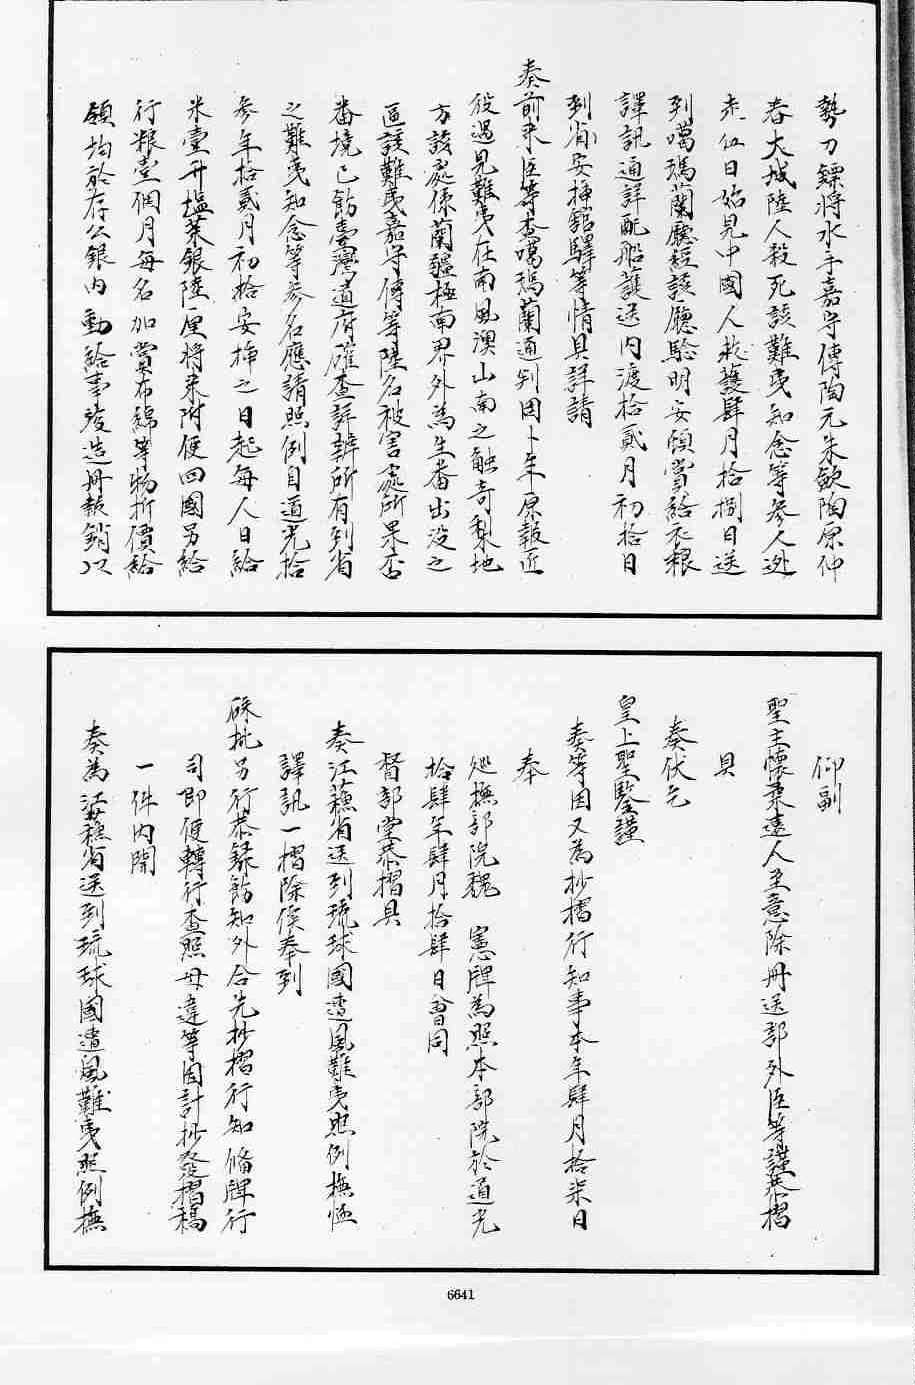 勢刀鏢將水手嘉守傳陶元朱歐陶原仲
春大城陸人殺死該難夷知念等參人逃
走伍日始見中國人救護肆月拾捌日送
到噶瑪蘭廳經該廳驗明妥頓賞給衣粮
譯訊通詳配船護送內渡拾貳月初拾日
到省安揷舘驛等情具詳請
奏前來臣等查噶瑪蘭通判因卜年原報近
役遇見難夷在南風澳山南之觸奇梨地
方該處係蘭疆極南界外為生番出沒之
區該難夷嘉守傳等陸名被害處所果否
番境已飭臺灣道府確查詳辦所有到省
之難夷知念等參名應請照例自道光拾
參年拾貳月初拾安揷之日起每人日給
米壹升塩菜銀陸厘將來附便回國另給
行粮壹個月每名加賞布綿等物折價給
領均於存公銀內動給事竣造冊報銷以
仰副
聖主懷柔遠人至意除冊送部外臣等謹恭摺
具
奏伏乞
皇上聖鑒謹
奏等因又為抄摺行知事本年肆月拾柒日
奉
巡撫部院魏　憲牌為照本部院於道光
拾肆年肆月拾肆日會同
督部堂恭摺具
奏江蘇省送到琉球國遭風難夷照例撫恤
譯訊一摺除俟奉到
硃批另行恭錄飭知外合先抄摺行知俻牌行
司即便轉行查照毋違等因計抄發摺稿
一件內開
奏為江蘇省送到琉球國遭風難夷照例撫
6641